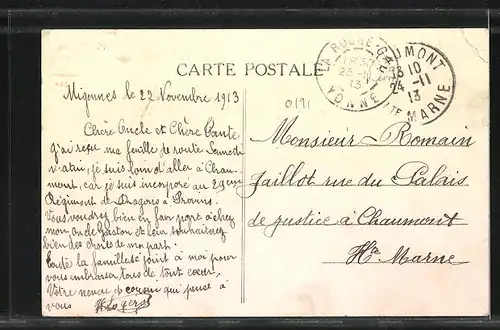 CARTE POSTALE
LA ROCHE-GARE
YONNE
CHAUMONT
13 10
24 -11
13
HTE MARNE
0171
Migennes le 22 Novembre 1913
Chère Oncle et Chère Tante
j'ai reçu ma feuille de route Samedi
matin, je suis loin d'aller à Chau-
mont, car je suis incorporé au 29eme
Régiment de Dragons à Provins.
Vous voudrez bien en fair part à chez
mon on de Gaston et leur souhaiterez
bien des choses de ma part.
Toute la famille se joint à moi pour
vous embrasser tous de tout cœur.
Votre neveu & cousin qui pense à
vous
Monsieur Romain
Jaillot rue du Palais
de justice à Chaumont
Hte Marne